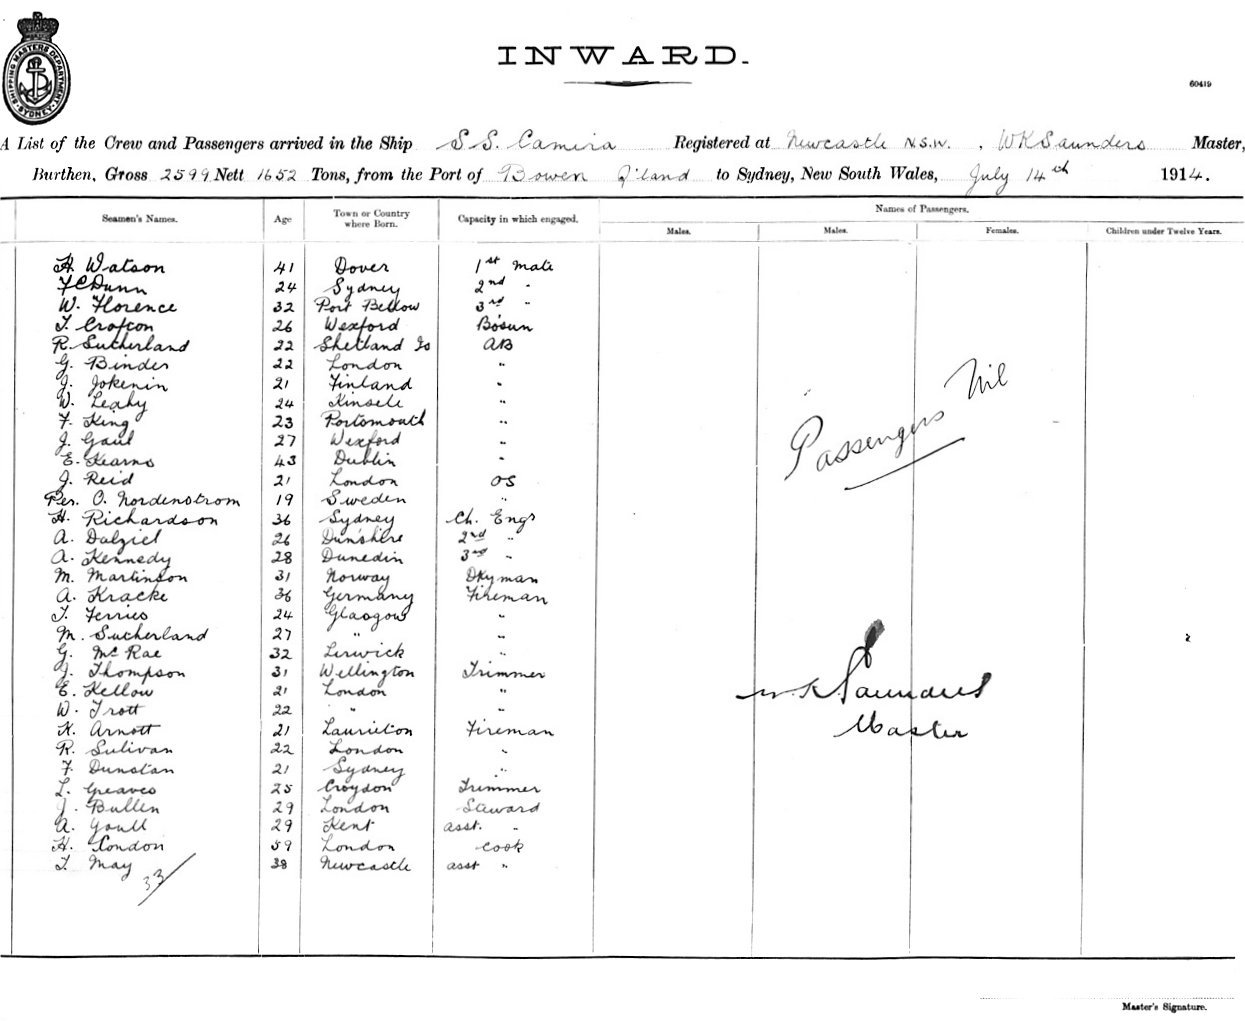 SHIPPING MASTERS DEPARTMENT SYDNEY
INWARD.
60419
A List of the Crew and Passengers arrived in the Ship S.S. Camira Registered at Newcastle N.S.W. , WK Saunders Master,
Burthen, Gross 2599 Nett 1652 Tons, from the Port of Bowen Q'land to Sydney, New South Wales, July 14th 1914.
Seamen's Names. Age Town or Country where Born. Capacity in which engaged. Names of Passengers.
Males. Males. Females. Children under Twelve Years.
H Watson 41 Dover 1st Mate
F C Dunn 24 Sydney 2nd "
W. Florence 32 Port Bellow 3rd "
T. Crofton 26 Wexford Bosun
R. Sutherland 22 Shetland Is AB
G. Binder 22 London "
J. Jokenin 21 Finland "
W. Leahy 24 Kinsele "
F. King 23 Portsmouth "
J. Gaul 27 Wexford "
E. Kearns 43 Dublin "
J. Reid 21 London OS
Per. O. Nordenstrom 19 Sweden "
H. Richardson 36 Sydney Ch. Engr
A. Dalziel 26 2nd "
A. Kennedy 28 Dunedin 3rd "
M. Martinson 31 Norway Dkyman
A. Kracke 36 Germany Fireman
T. Ferries 24 Glasgow "
M. Sutherland 27 " "
G. McRae 32 Lerwick "
J. Thompson 31 Wellington Trimmer
E. Kellow 21 London "
W. Trott 22 " "
K. Arnott 21 Laurieton Fireman
R. Sulivan 22 London "
F. Dunstan 21 Sydney "
L. Greaves 25 Croydon Trimmer
J. Bullen 29 London Steward
A. Youll 29 Kent asst. "
H. London 59 London Cook
T. May 38 Newcastle asst "
33
Passengers Nil
W. K. Saunders
Master
Master's Signature.